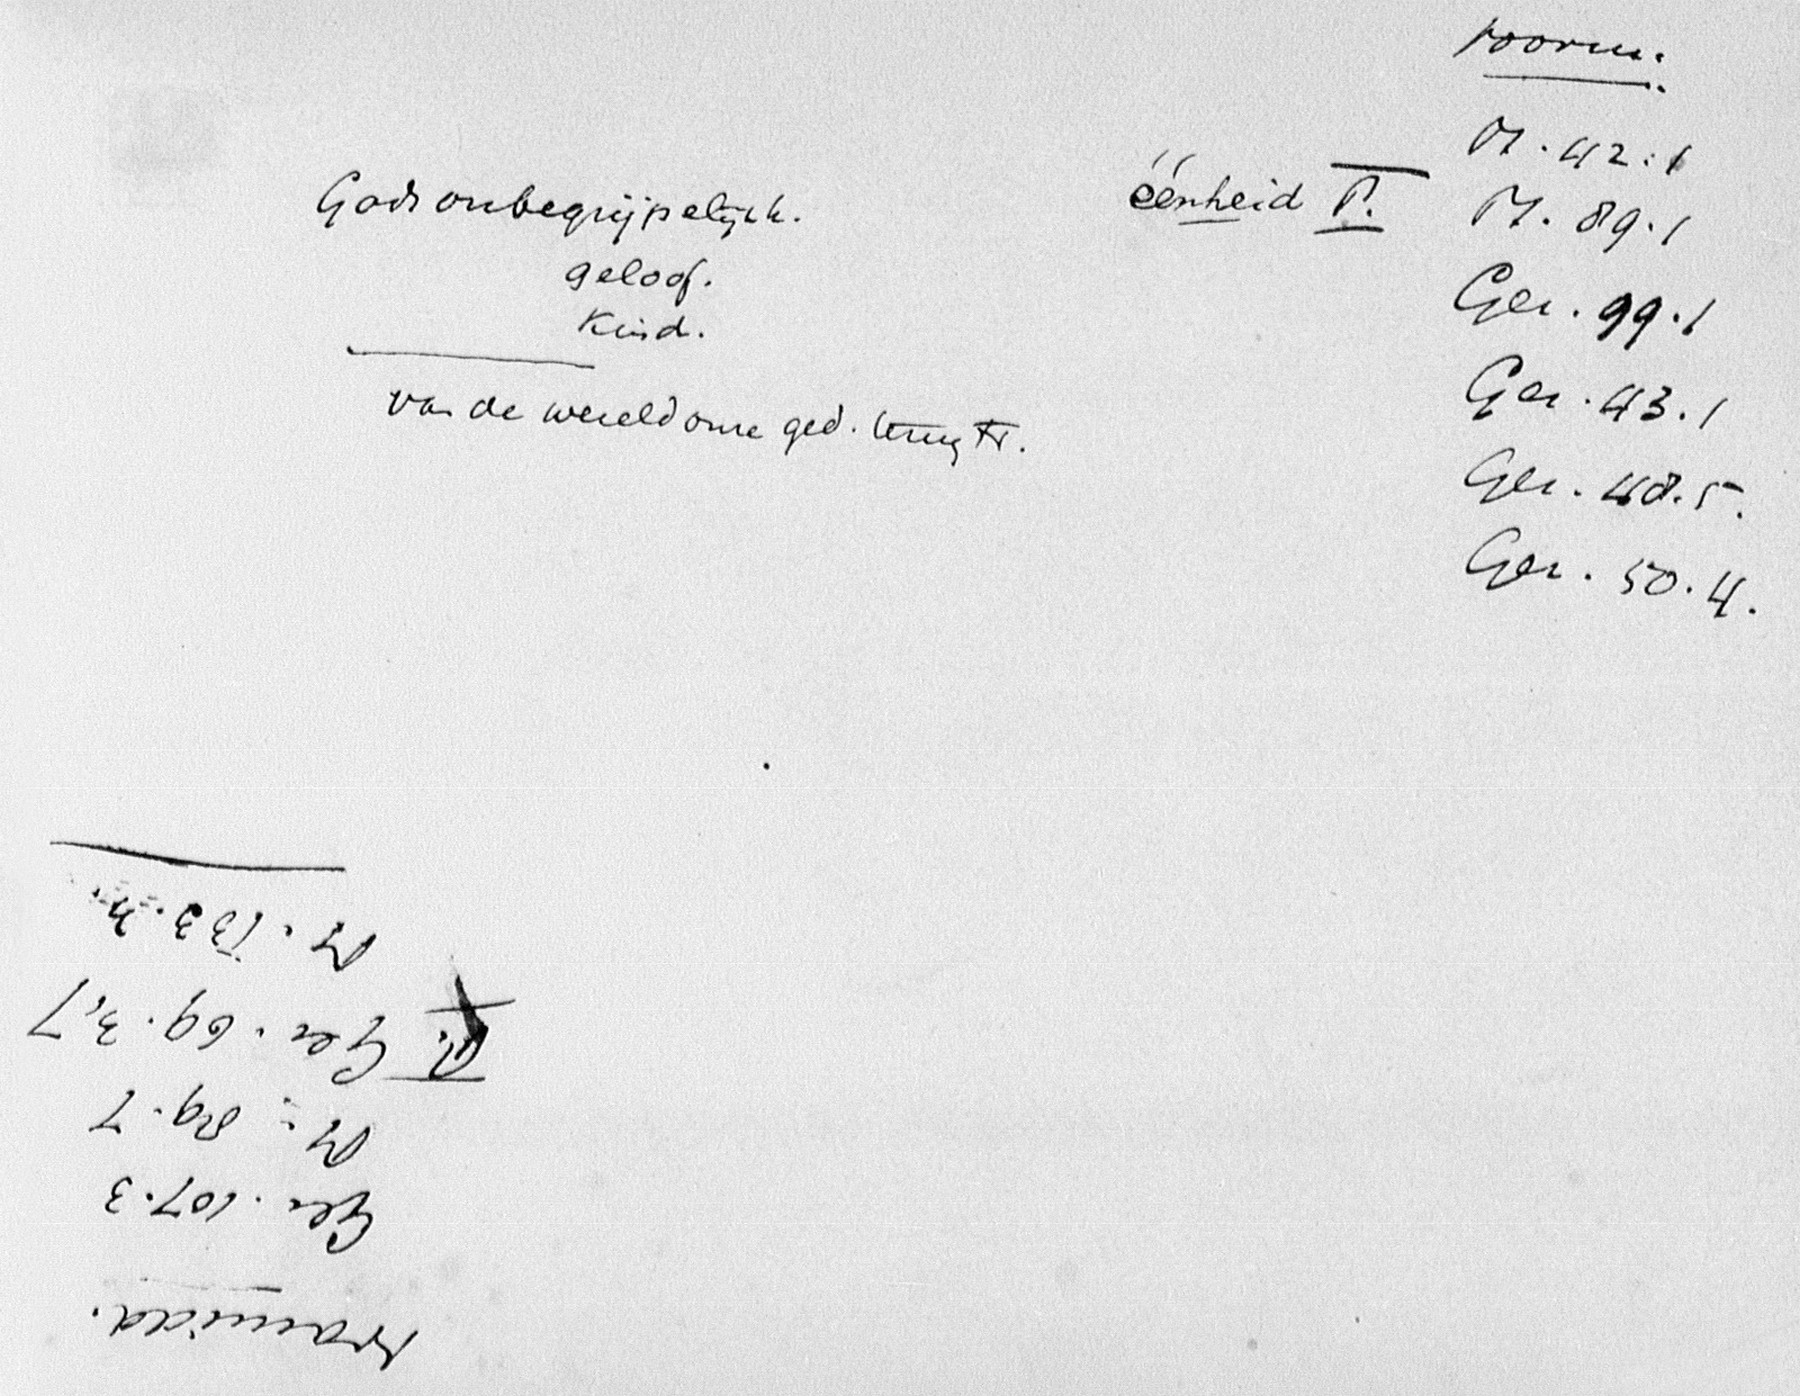 voorm.
Ps. 42:1
Ps. 89.1
Gez. 99.1
Gez. 43.1
Gez. 48.5.
Gez. 50.4.
ééenheid P.
Gods onbegrijpelijkh.
geloof.
Kind.
van de wereld onze ged. terug tr.
namidd.
Gez. 107.3
Ps. 89.7
P. Gez. 69.3,7
Ps. 133.